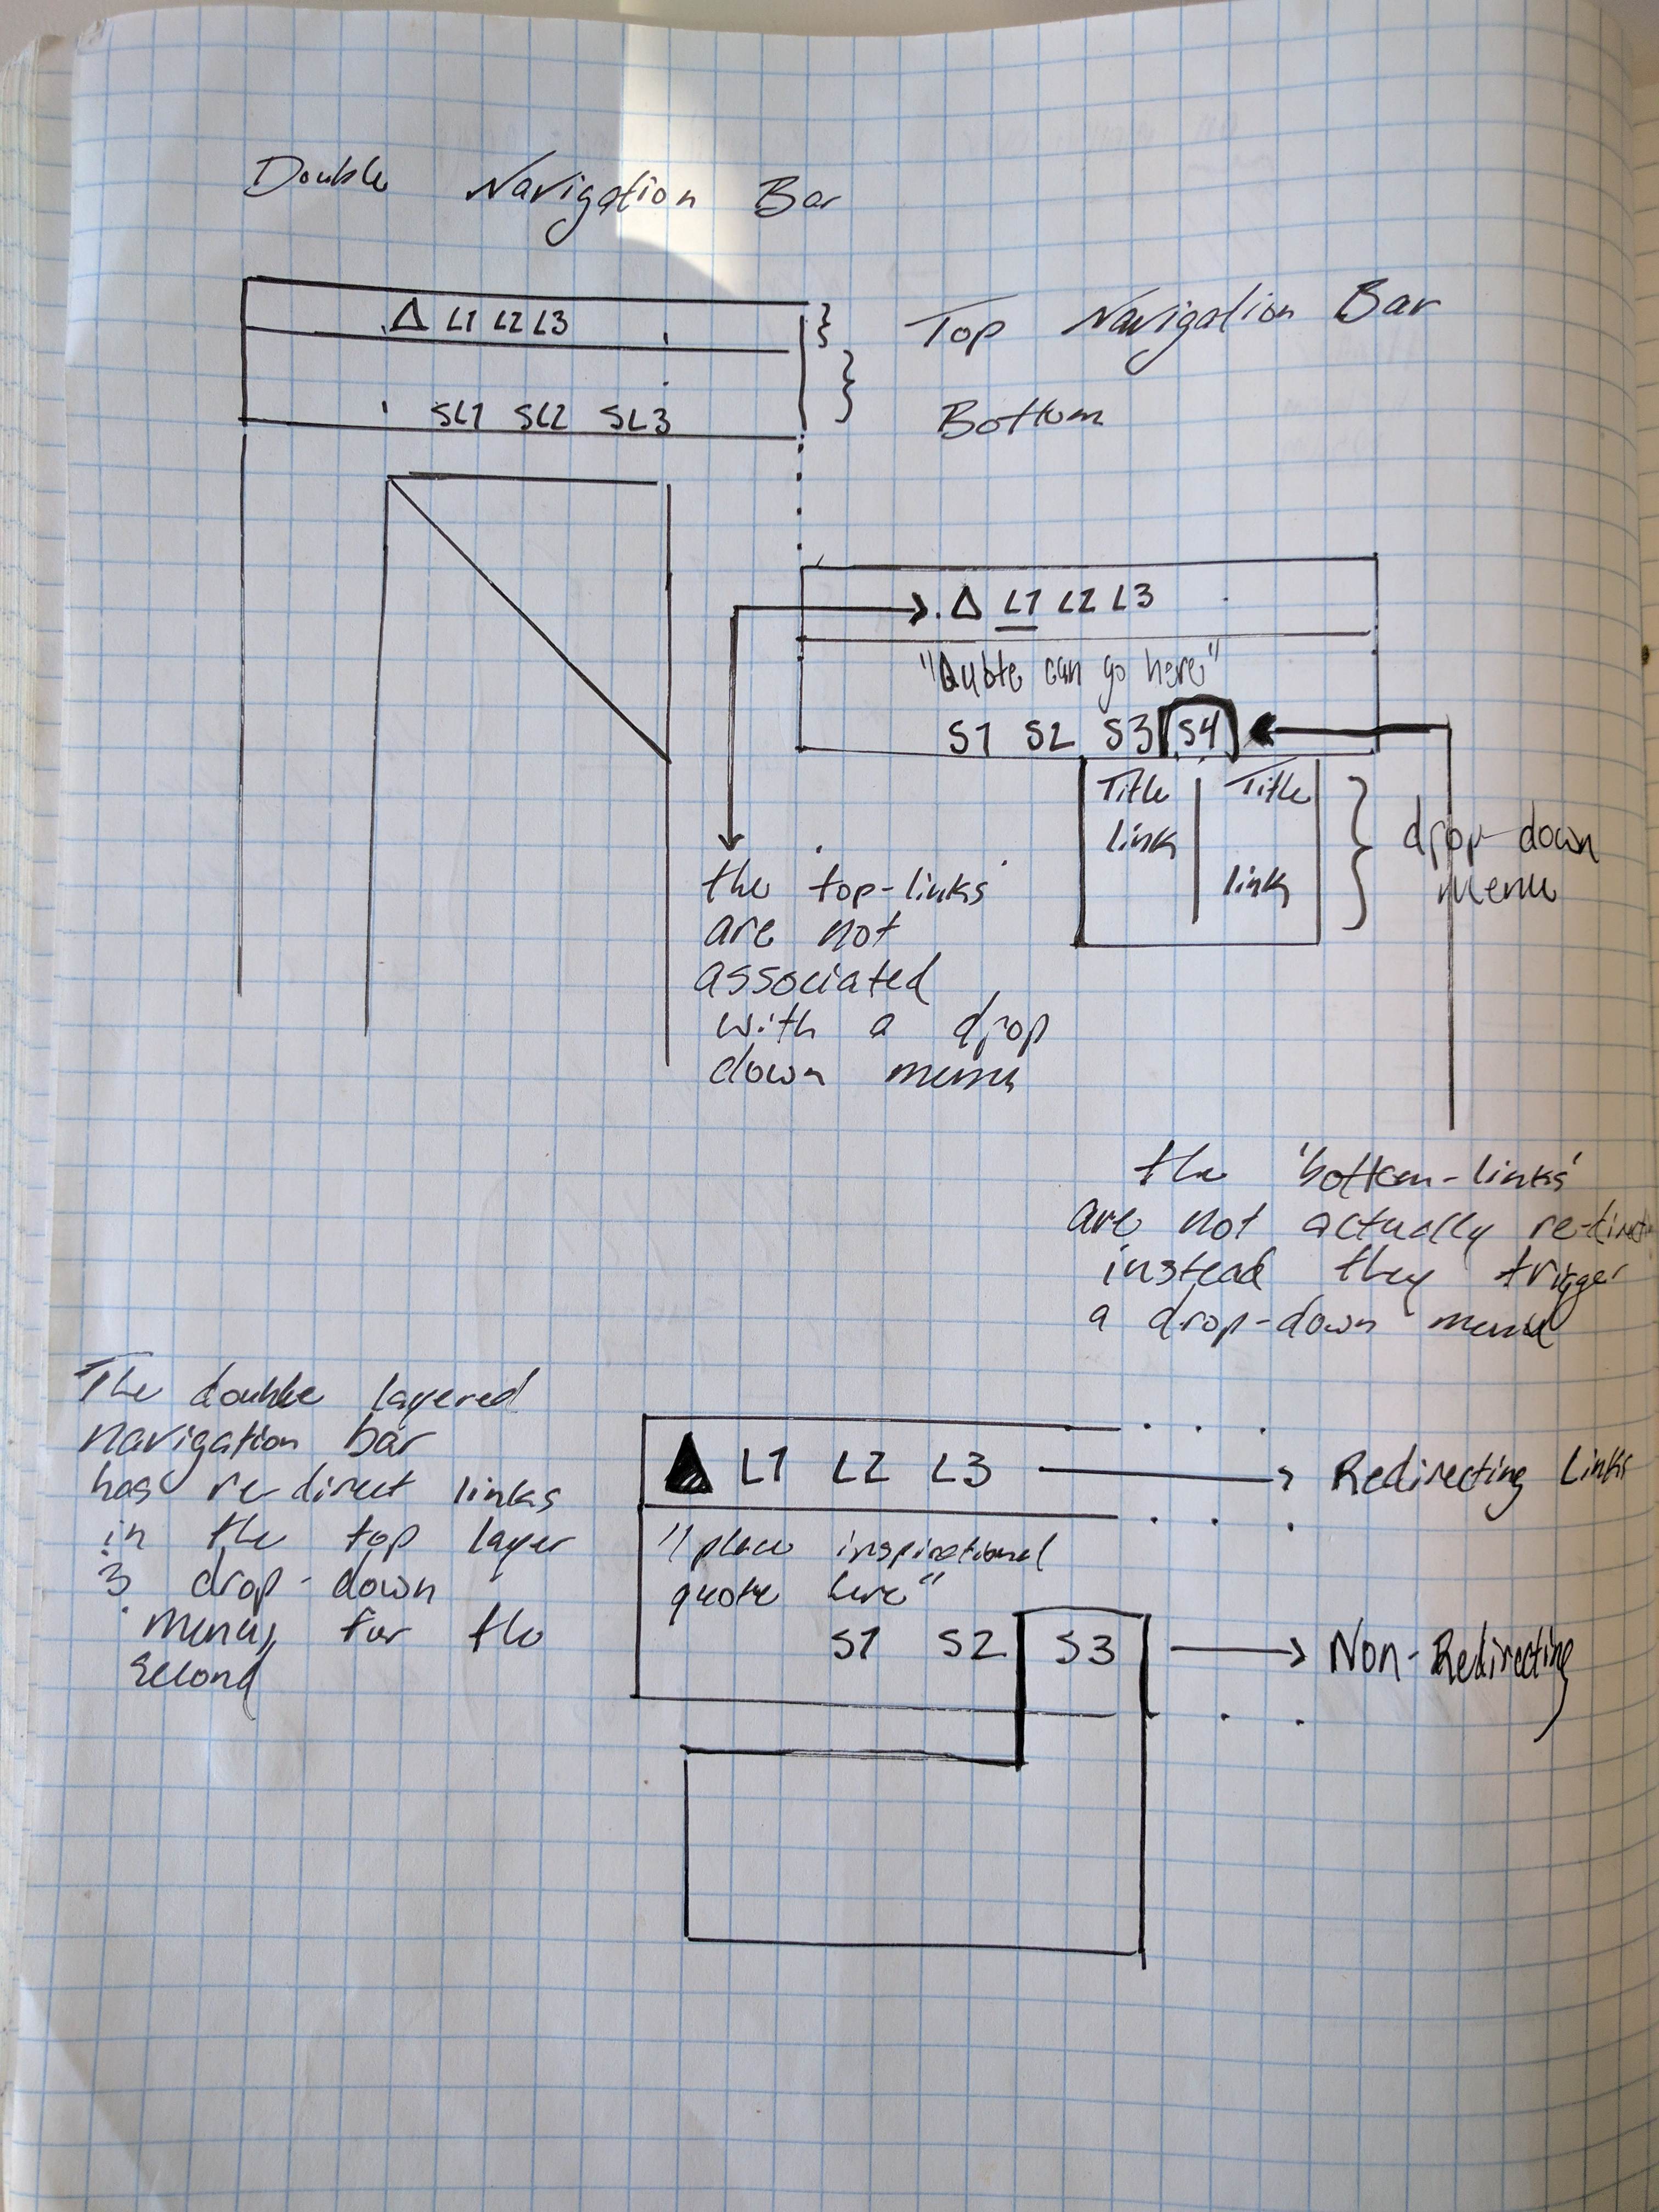 Double Navigation Bar
Δ L1 L2 L3
Top Navigation Bar
SL1 SL2 SL3
Bottom
Δ L1 L2 L3
"Quote can go here"
S1 S2 S3 S4
Title Title
link
link
drop-down
menu
the top-links
are not
associated
with a drop
down menu
the 'bottom-links'
are not actually
instead they trigger
a drop-down menu
The double layered
navigation bar
has re-direct links
in the top layer
drop-down
menus for the
second
L1 L2 L3
Redirecting Links
"place inspirational
quote here"
S1 S2 S3
Non-Redirecting